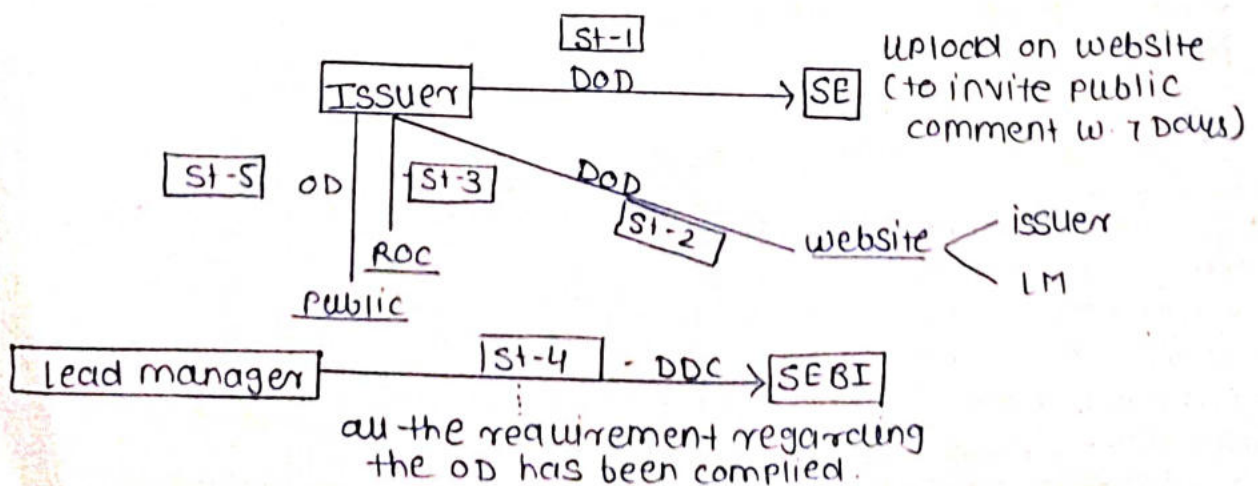 St-1
DOD
Issuer
SE
upload on website
(to invite public
comment w. 7 Days)
St-5
OD
St-3
DOD
St-2
ROC
public
website
issuer
LM
Lead manager
St-4
DDC
SEBI
all the requirement regarding
the OD has been complied.